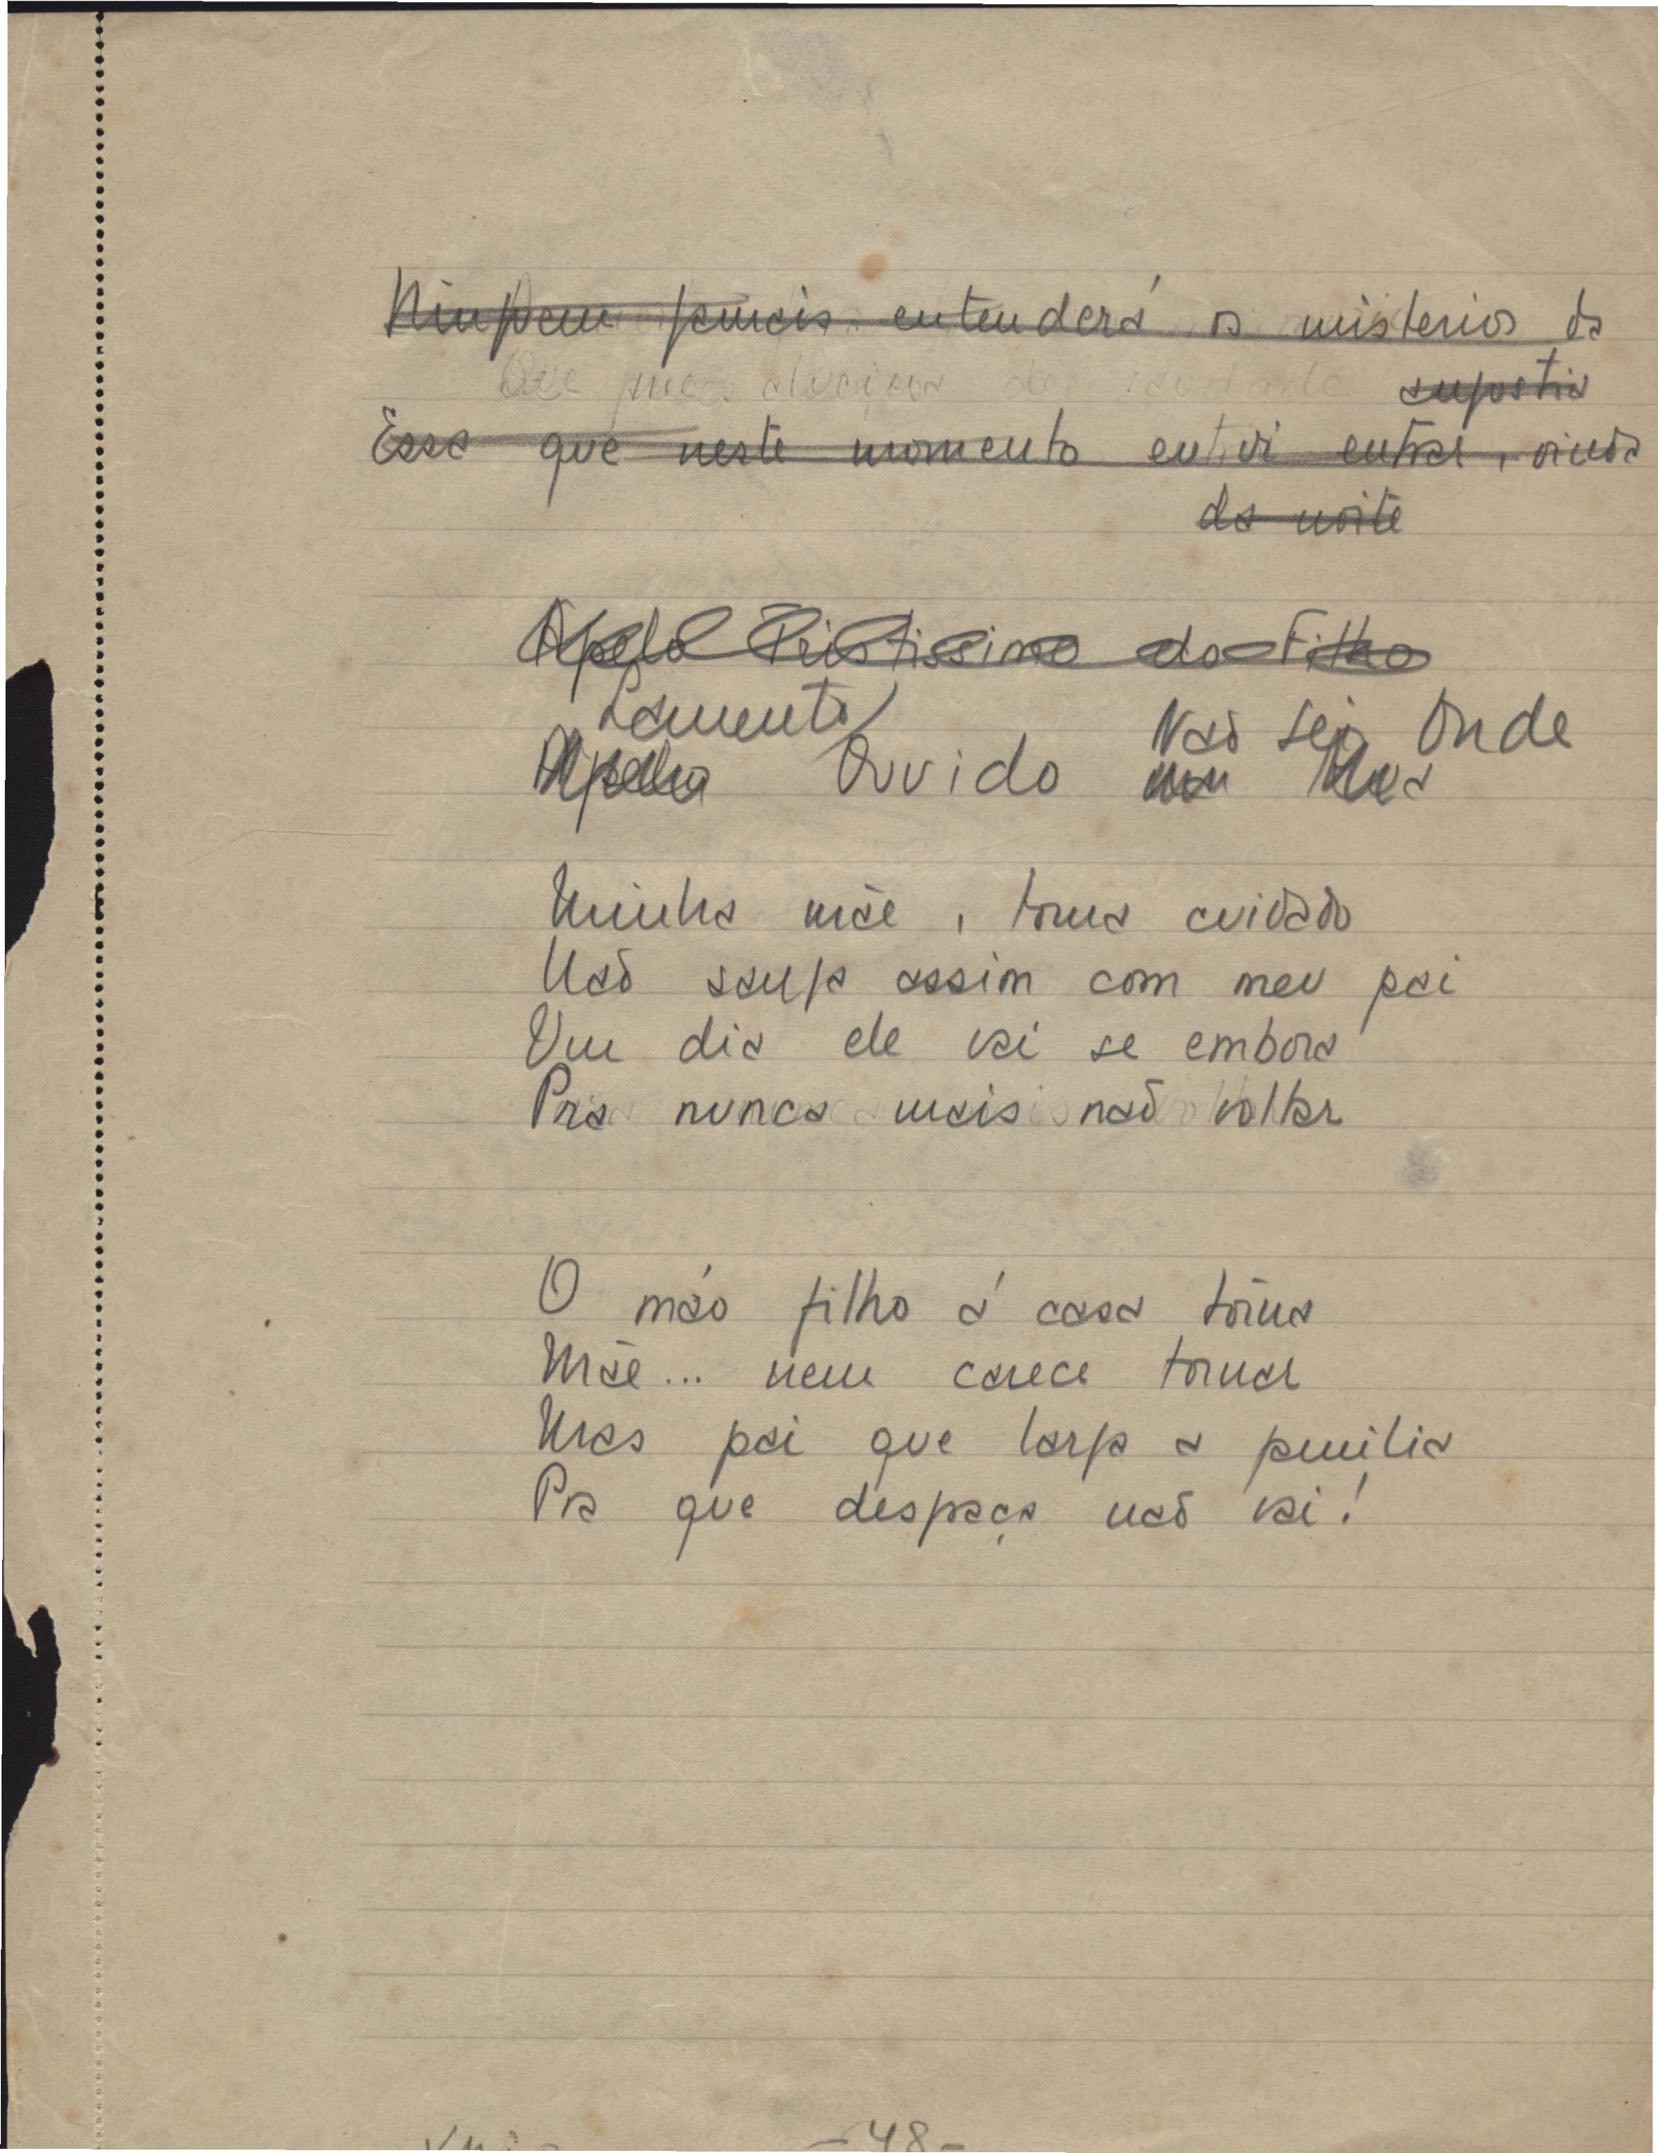 Ninguem jamais entenderá os misterios da
angustia
Essa que neste momento eu vi entrar, vinda
da noite
Apelo Tristissimo do Filho
Lamento Não Sei Onde
Apelo Ouvido Rua
Minha mãe, toma cuidado
Não zanga assim com meu pai
Um dia ele vai se embora
Pra nunca mais não voltar
O máo filho á casa tórna
Mãe... nem carece tornar
Mas pai que larga a familia
Pra que desgraça não vai!
-48-